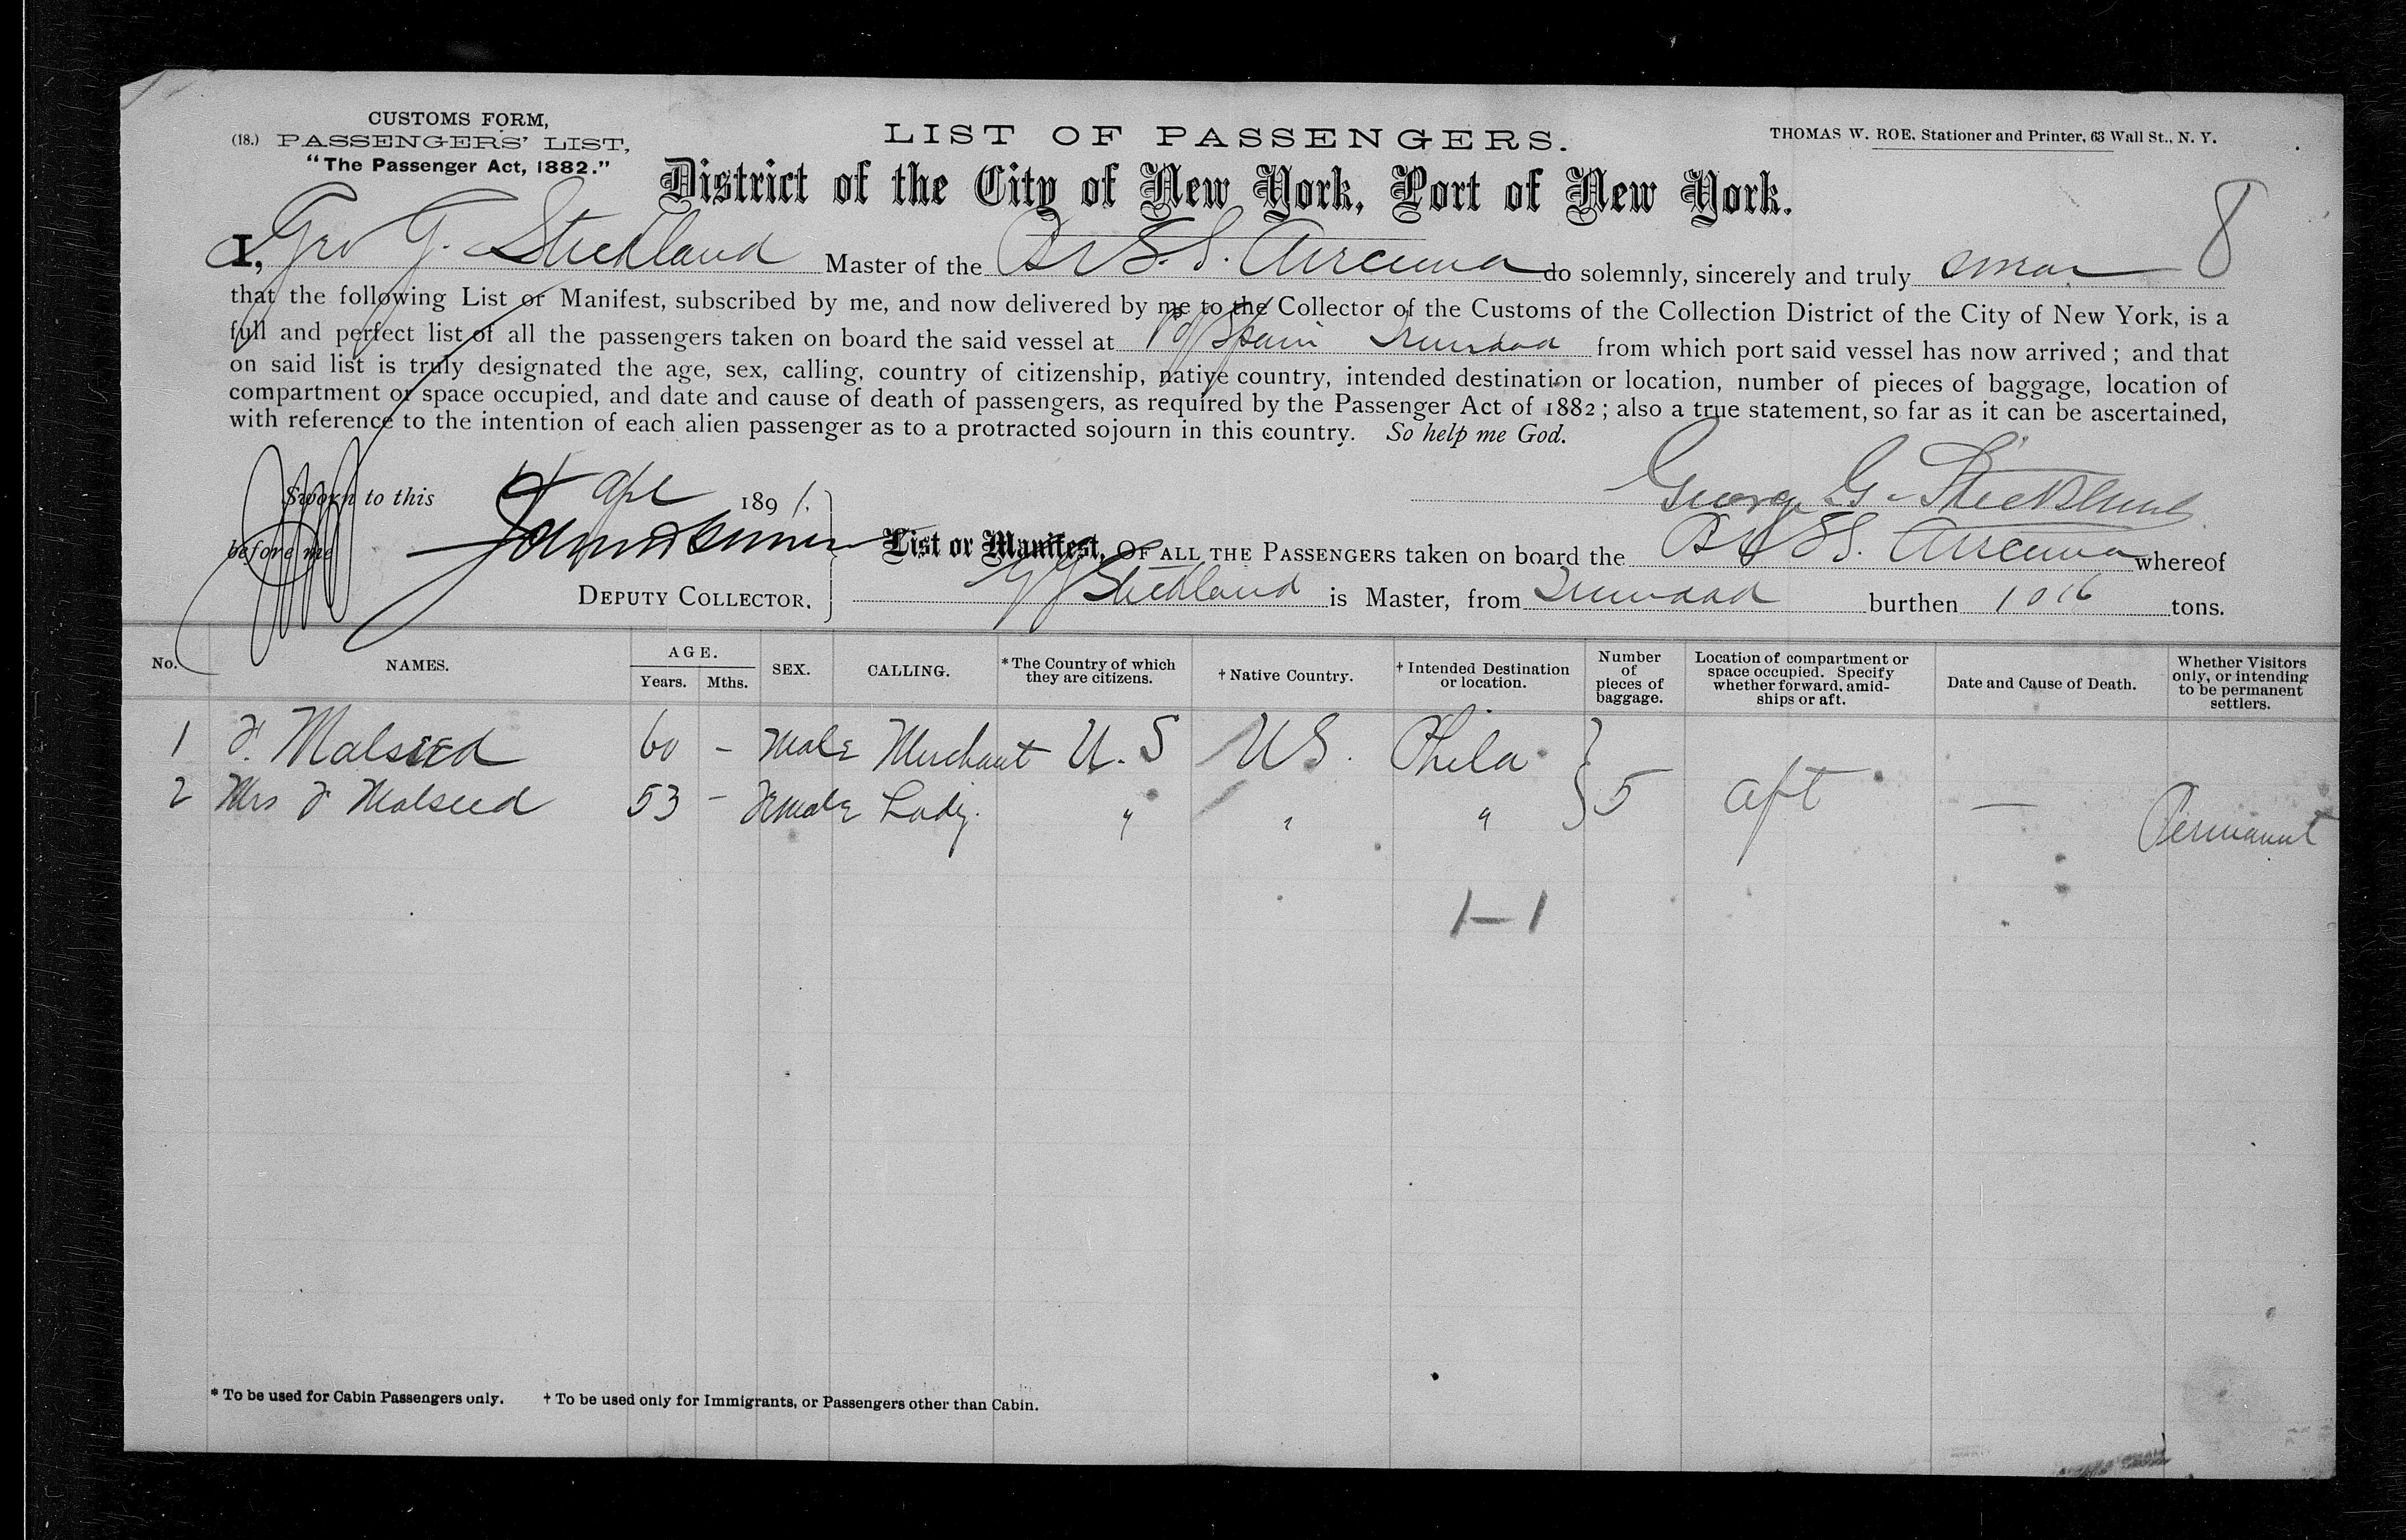 CUSTOMS FORM,
(18.) PASSENGERS' LIST,
"The Passenger Act, 1882."
LIST OF PASSENGERS.
THOMAS W. ROE, Stationer and Printer, 63 Wall St., N. Y.
District of the City of New York, Port of New York.
8
I, Geo G. Strickland Master of the Br S.S. do solemnly, sincerely and truly swear
that the following List or Manifest, subscribed by me, and now delivered by me to the Collector of the Customs of the Collection District of the City of New York, is a
full and perfect list of all the passengers taken on board the said vessel at P of Spain Trinidad from which port said vessel has now arrived; and that
on said list is truly designated the age, sex, calling, country of citizenship, native country, intended destination or location, number of pieces of baggage, location of
compartment or space occupied, and date and cause of death of passengers, as required by the Passenger Act of 1882; also a true statement, so far as it can be ascertained,
with reference to the intention of each alien passenger as to a protracted sojourn in this country. So help me God.
Sworn to this 4 Apl 1891.
George G. Strickland
before me
DEPUTY COLLECTOR.
List or Manifest, OF ALL THE PASSENGERS taken on board the Br SS. whereof
G G Strickland is Master, from Trinidad burthen 1016 tons.
No. NAMES. AGE. Years. Mths. SEX. CALLING. * The Country of which they are citizens. † Native Country. † Intended Destination or location. Number of pieces of baggage. Location of compartment or space occupied. Specify whether forward, amidships or aft. Date and Cause of Death. Whether Visitors only, or intending to be permanent settlers.
1 F. Malseed 60 – Male Merchant U.S US. Phila
2 Mrs F Malseed 53 – Female Lady. " " " 5 aft — Permanent
1–1
* To be used for Cabin Passengers only. † To be used only for Immigrants, or Passengers other than Cabin.